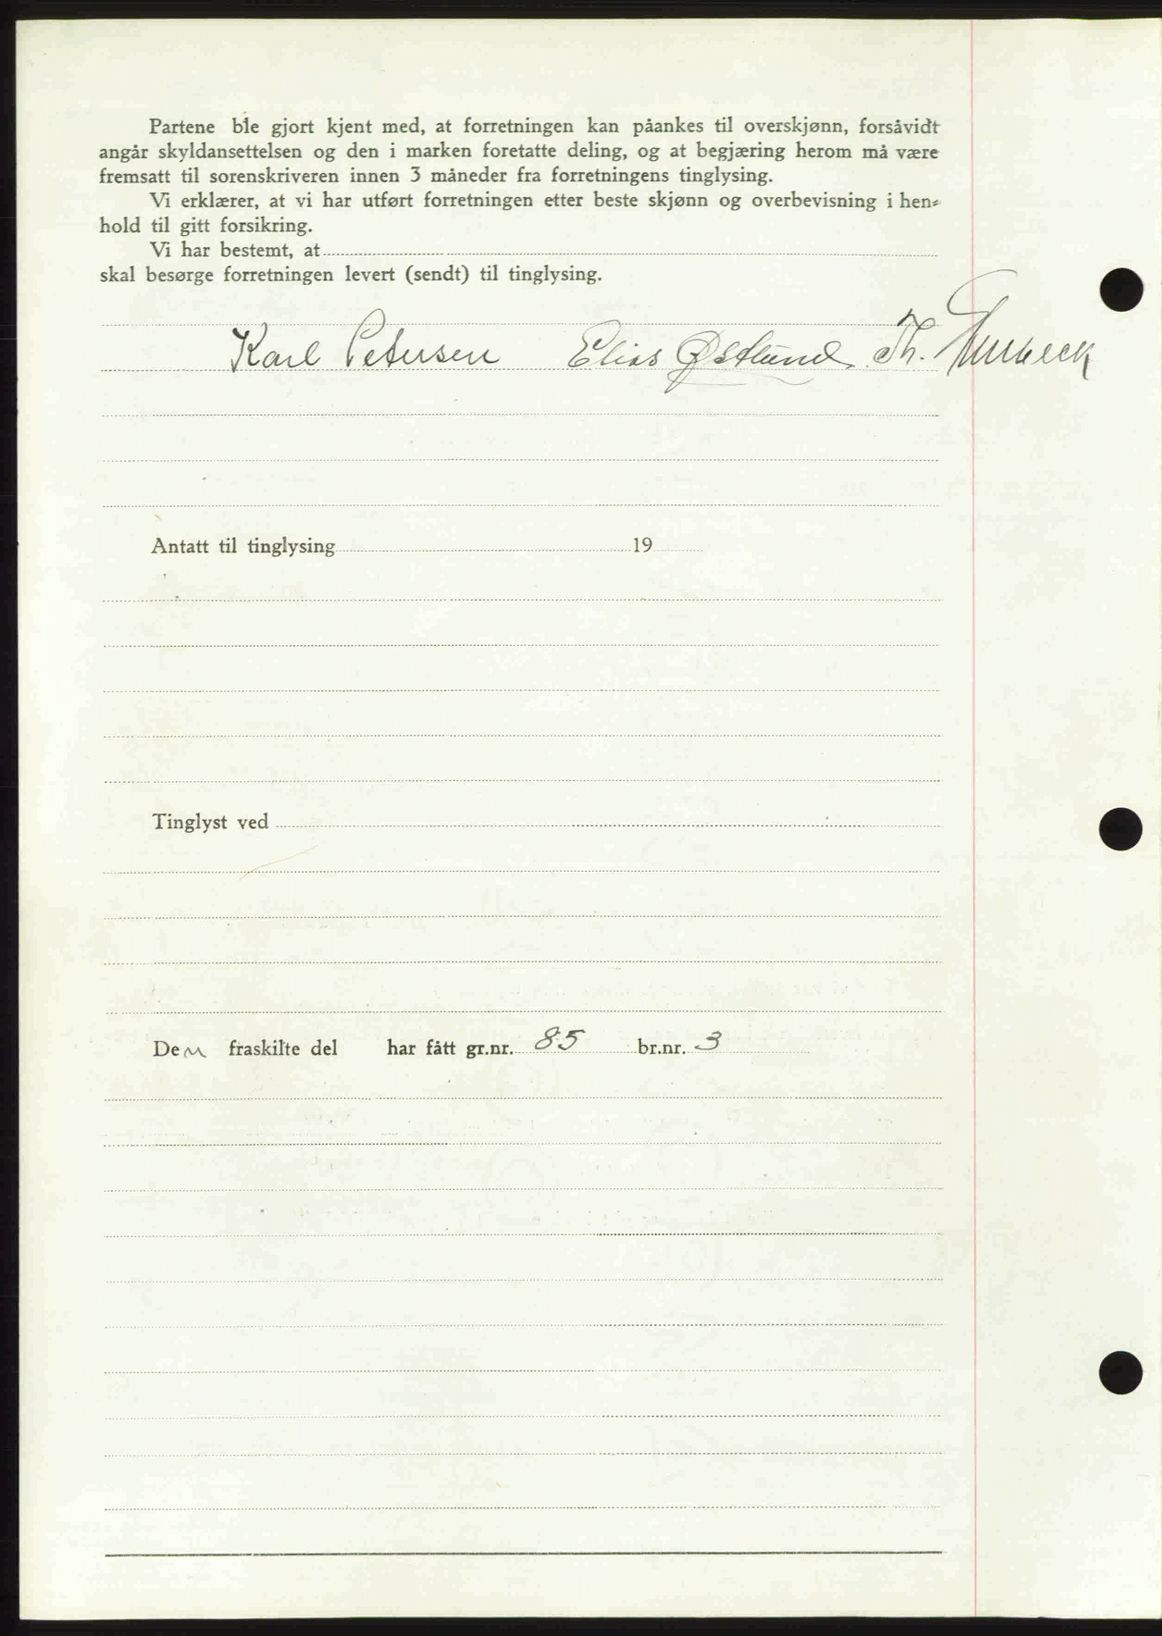 Partene ble gjort kjent med, at forretningen kan påankes til overskjønn, forsåvidt
angår skyldansettelsen og den i marken foretatte deling, og at begjæring herom må være
fremsatt til sorenskriveren innen 3 måneder fra forretningens tinglysing.
Vi erklærer, at vi har utført forretningen etter beste skjønn og overbevisning i hen-
hold til gitt forsikring.
Vi har bestemt, at
skal besørge forretningen levert (sendt) til tinglysing.
Karl Petersen Elias Østlund Th.
Antatt til tinglysing 19
Tinglyst ved
Den fraskilte del har fått gr.nr. 85 br.nr. 3